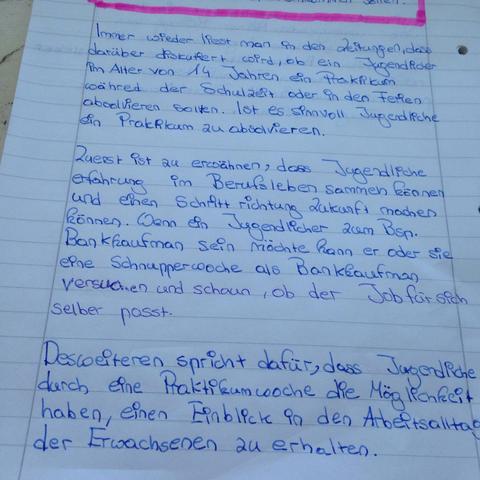 sollen.
Immer wieder liest man in den Zeitungen, dass
darüber diskutiert wird, ob ein Jugendlicher
im Alter von 14 Jahren ein Praktikum
während der Schulzeit oder in den Ferien
absolvieren sollen. Ist es sinnvoll Jugendliche
ein Praktikum zu absolvieren.
Zuerst ist zu erwähnen, dass Jugendliche
erfahrung im Berufsleben sammeln können
und einen Schritt richtung Zukunft machen
können. Wenn ein Jugendlicher zum Bsp.
Bankkaufman sein möchte kann er oder sie
eine Schnupperwoche als Bankkaufman
versuchen und schaun, ob der Job für sich
selber passt.
Desweiteren spricht dafür, dass Jugendliche
durch eine Praktikumwoche die Möglichkeit
haben, einen Einblick in den Arbeitsalltag
der Erwachsenen zu erhalten.